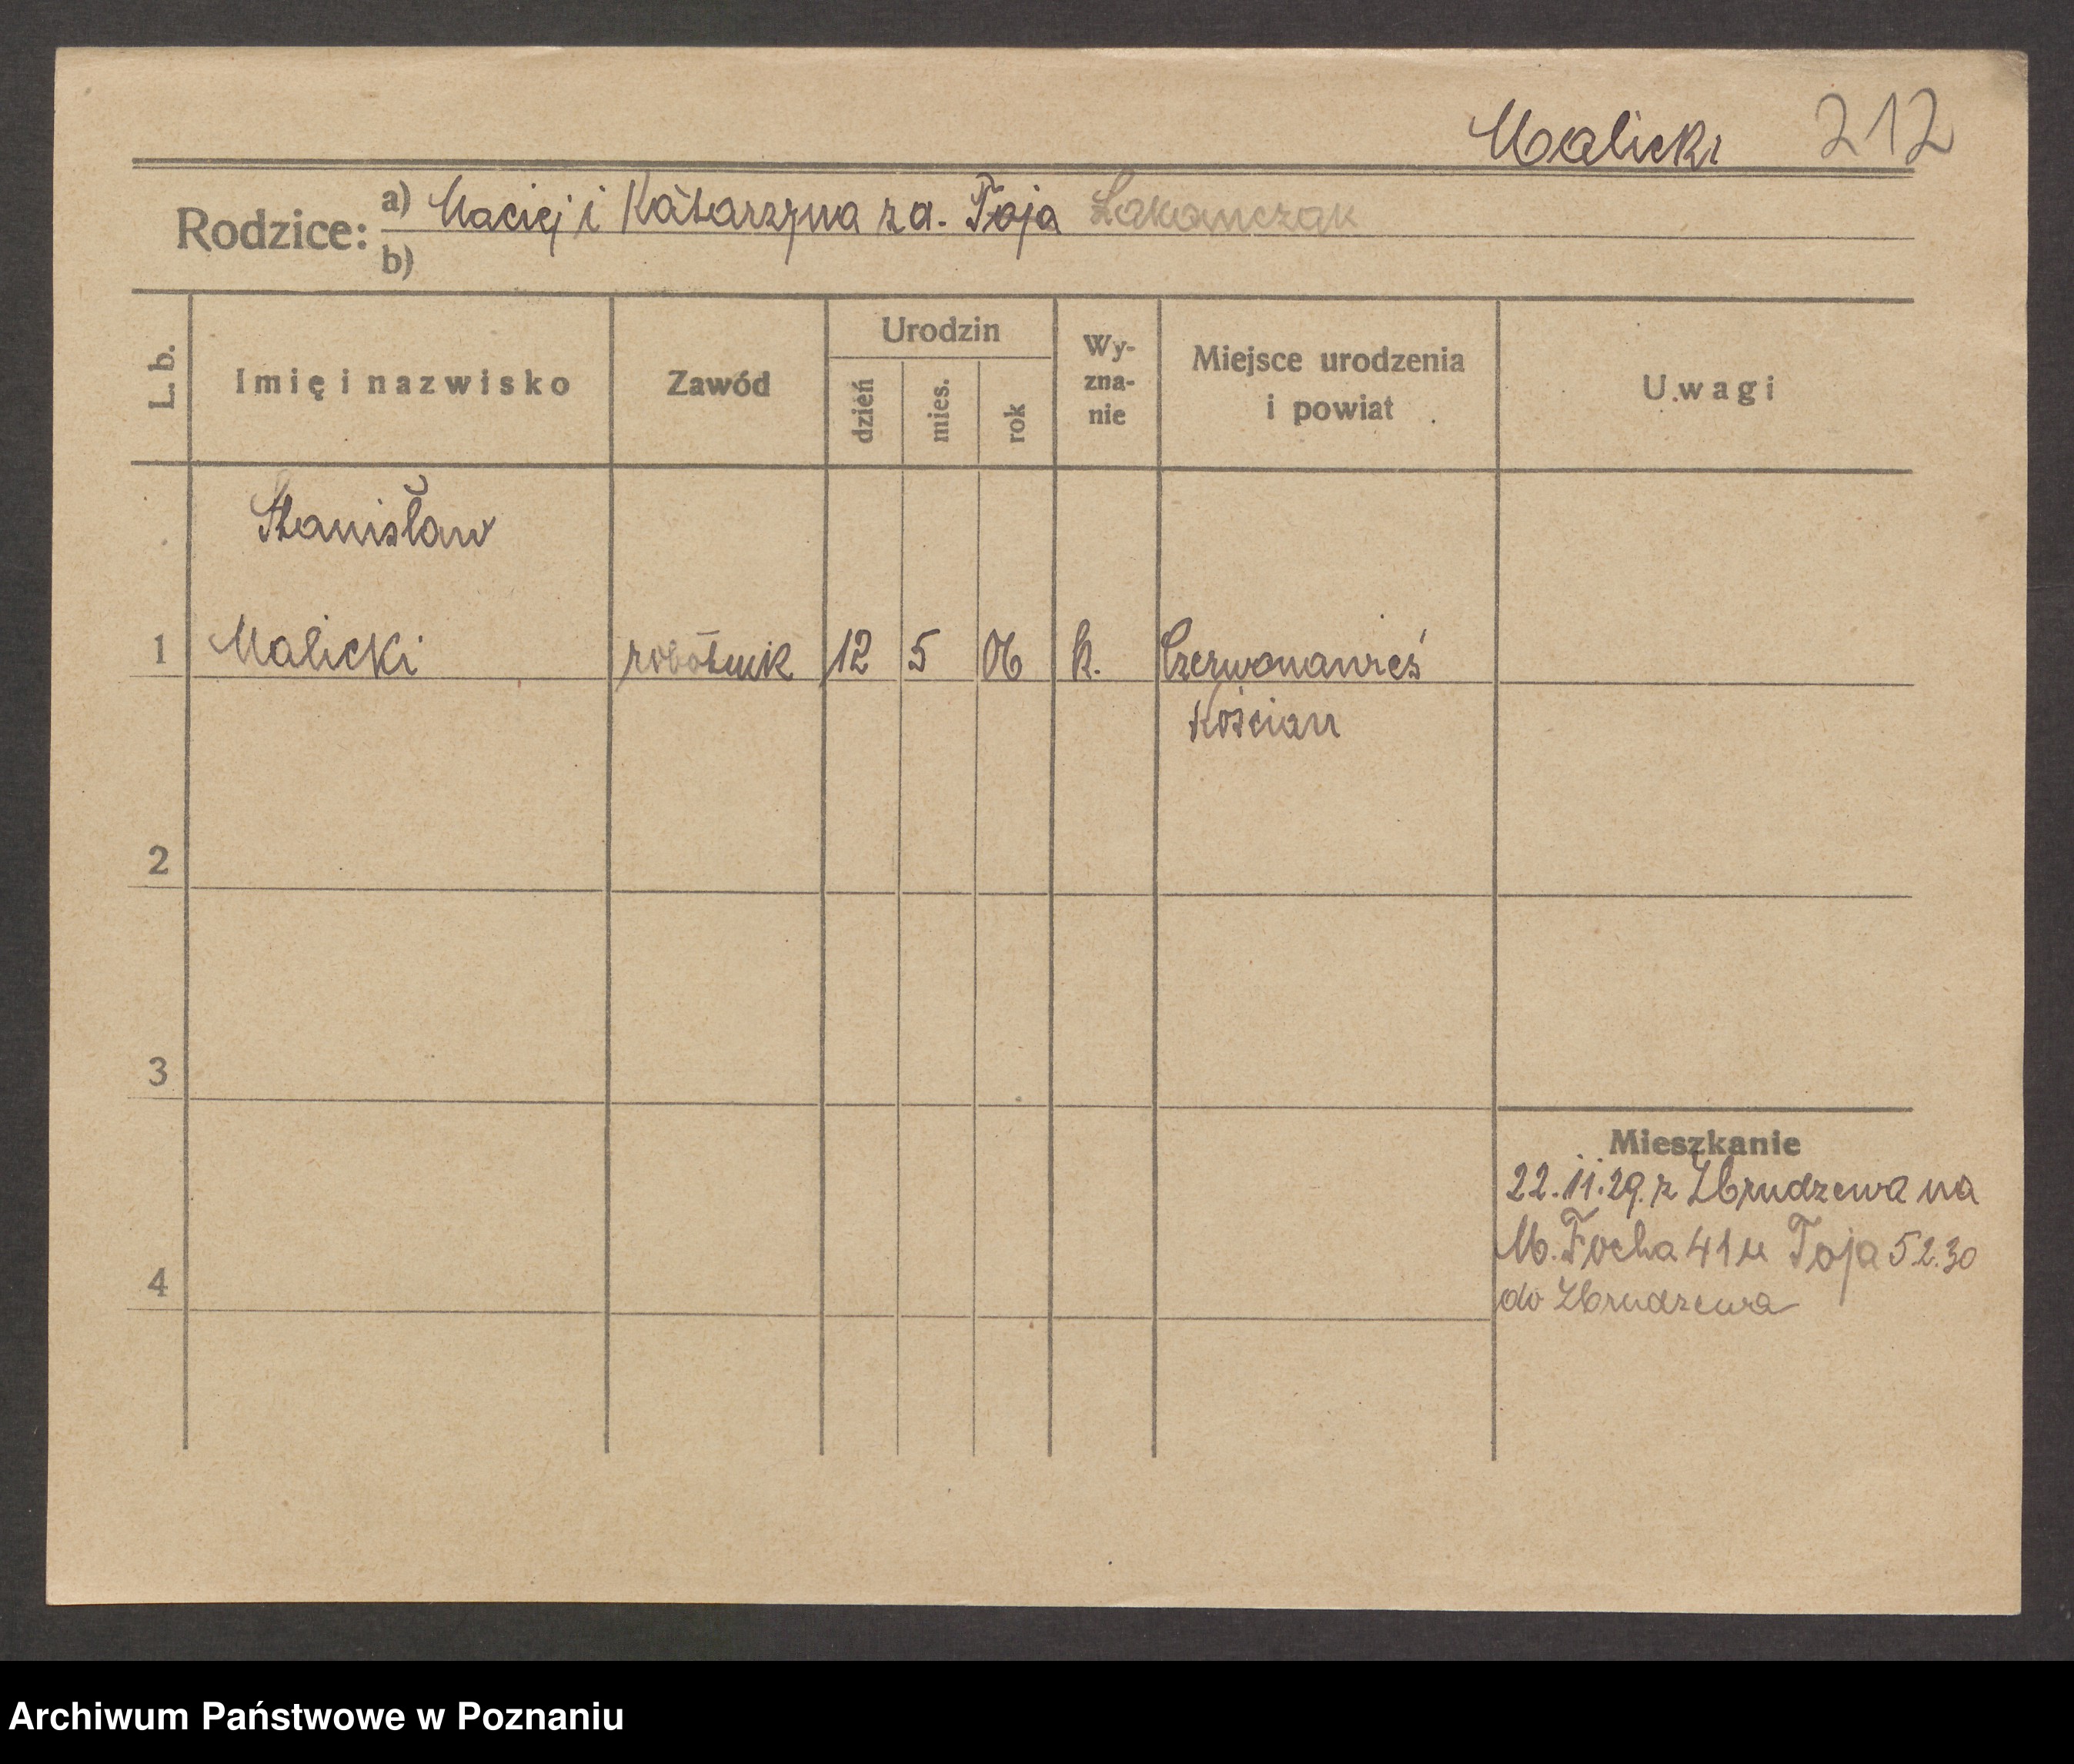 Malicki 212
Rodzice: a) Maciej i Katarzyna za. Foja
b)
L. b.
Imię i nazwisko
Zawód
Urodzin
dzień
mies.
rok
Wy-
zna-
nie
Miejsce urodzenia
i powiat
Uwagi
Stanisław
1 Malicki robotnik 12 5 06 k. Czerwonawieś
Kościan
2
3
4
Mieszkanie
22.11.29. z Zbrudzewa na
M. Focha 41 u Foja 5 2.30
do Zbrudzewa
Archiwum Państwowe w Poznaniu